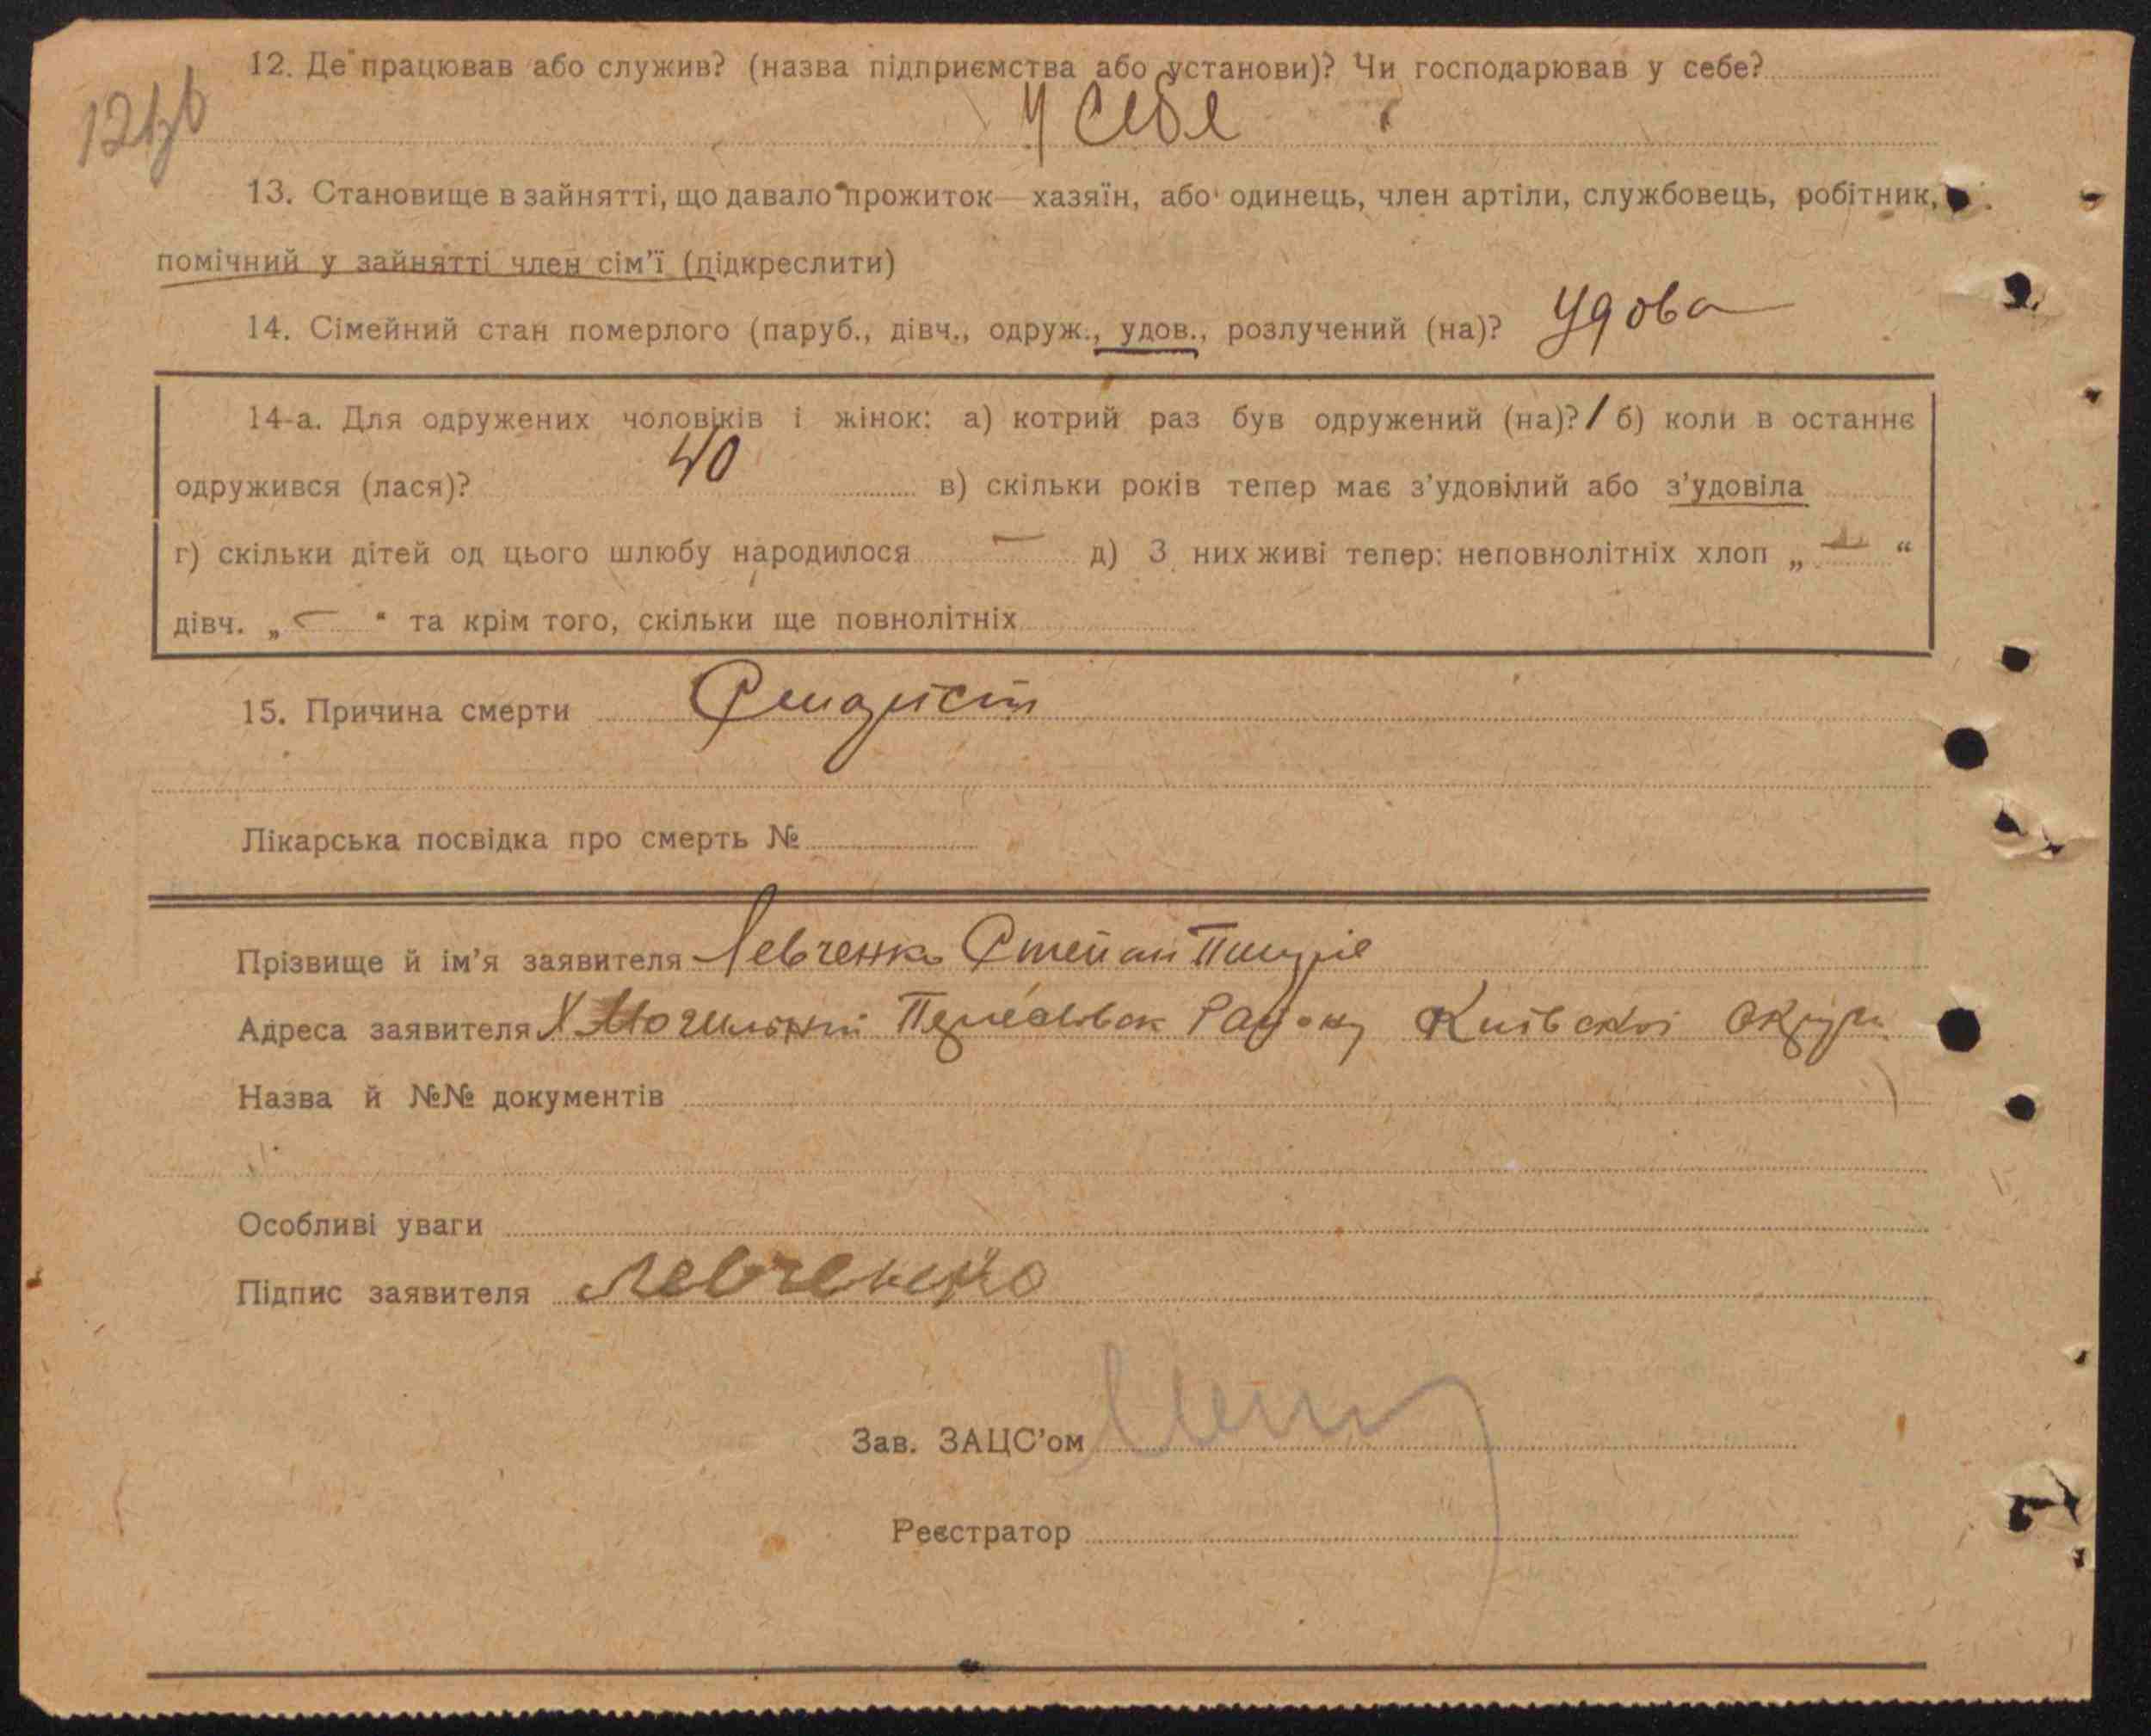 12. Де працював або служив? (назва підприємства або установи)? Чи господарював у себе?
у себе
13. Становище в зайнятті, що давало прожиток — хазяїн, або одинець, член артіли, службовець, робітник,
помічний у зайнятті член сім'ї (підкреслити)
14. Сімейний стан померлого (паруб., дівч., одруж., удов., розлучений (на)? Удова
14-а. Для одружених чоловіків і жінок: а) котрий раз був одружений (на)? 1 б) коли в останнє
одружився (лася)? 40 в) скільки років тепер має з'удовілий або з'удовіла
г) скільки дітей од цього шлюбу народилося — д) З них живі тепер: неповнолітніх хлоп „ — “
дівч. „ — “ та крім того, скільки ще повнолітніх
15. Причина смерти
Лікарська посвідка про смерть №
Прізвище й ім'я заявителя Левченко Степан
Адреса заявителя Х Могильний Району Київської Округи
Назва й №№ документів
Особливі уваги
Підпис заявителя Левченко
Зав. ЗАЦС'ом
Реєстратор